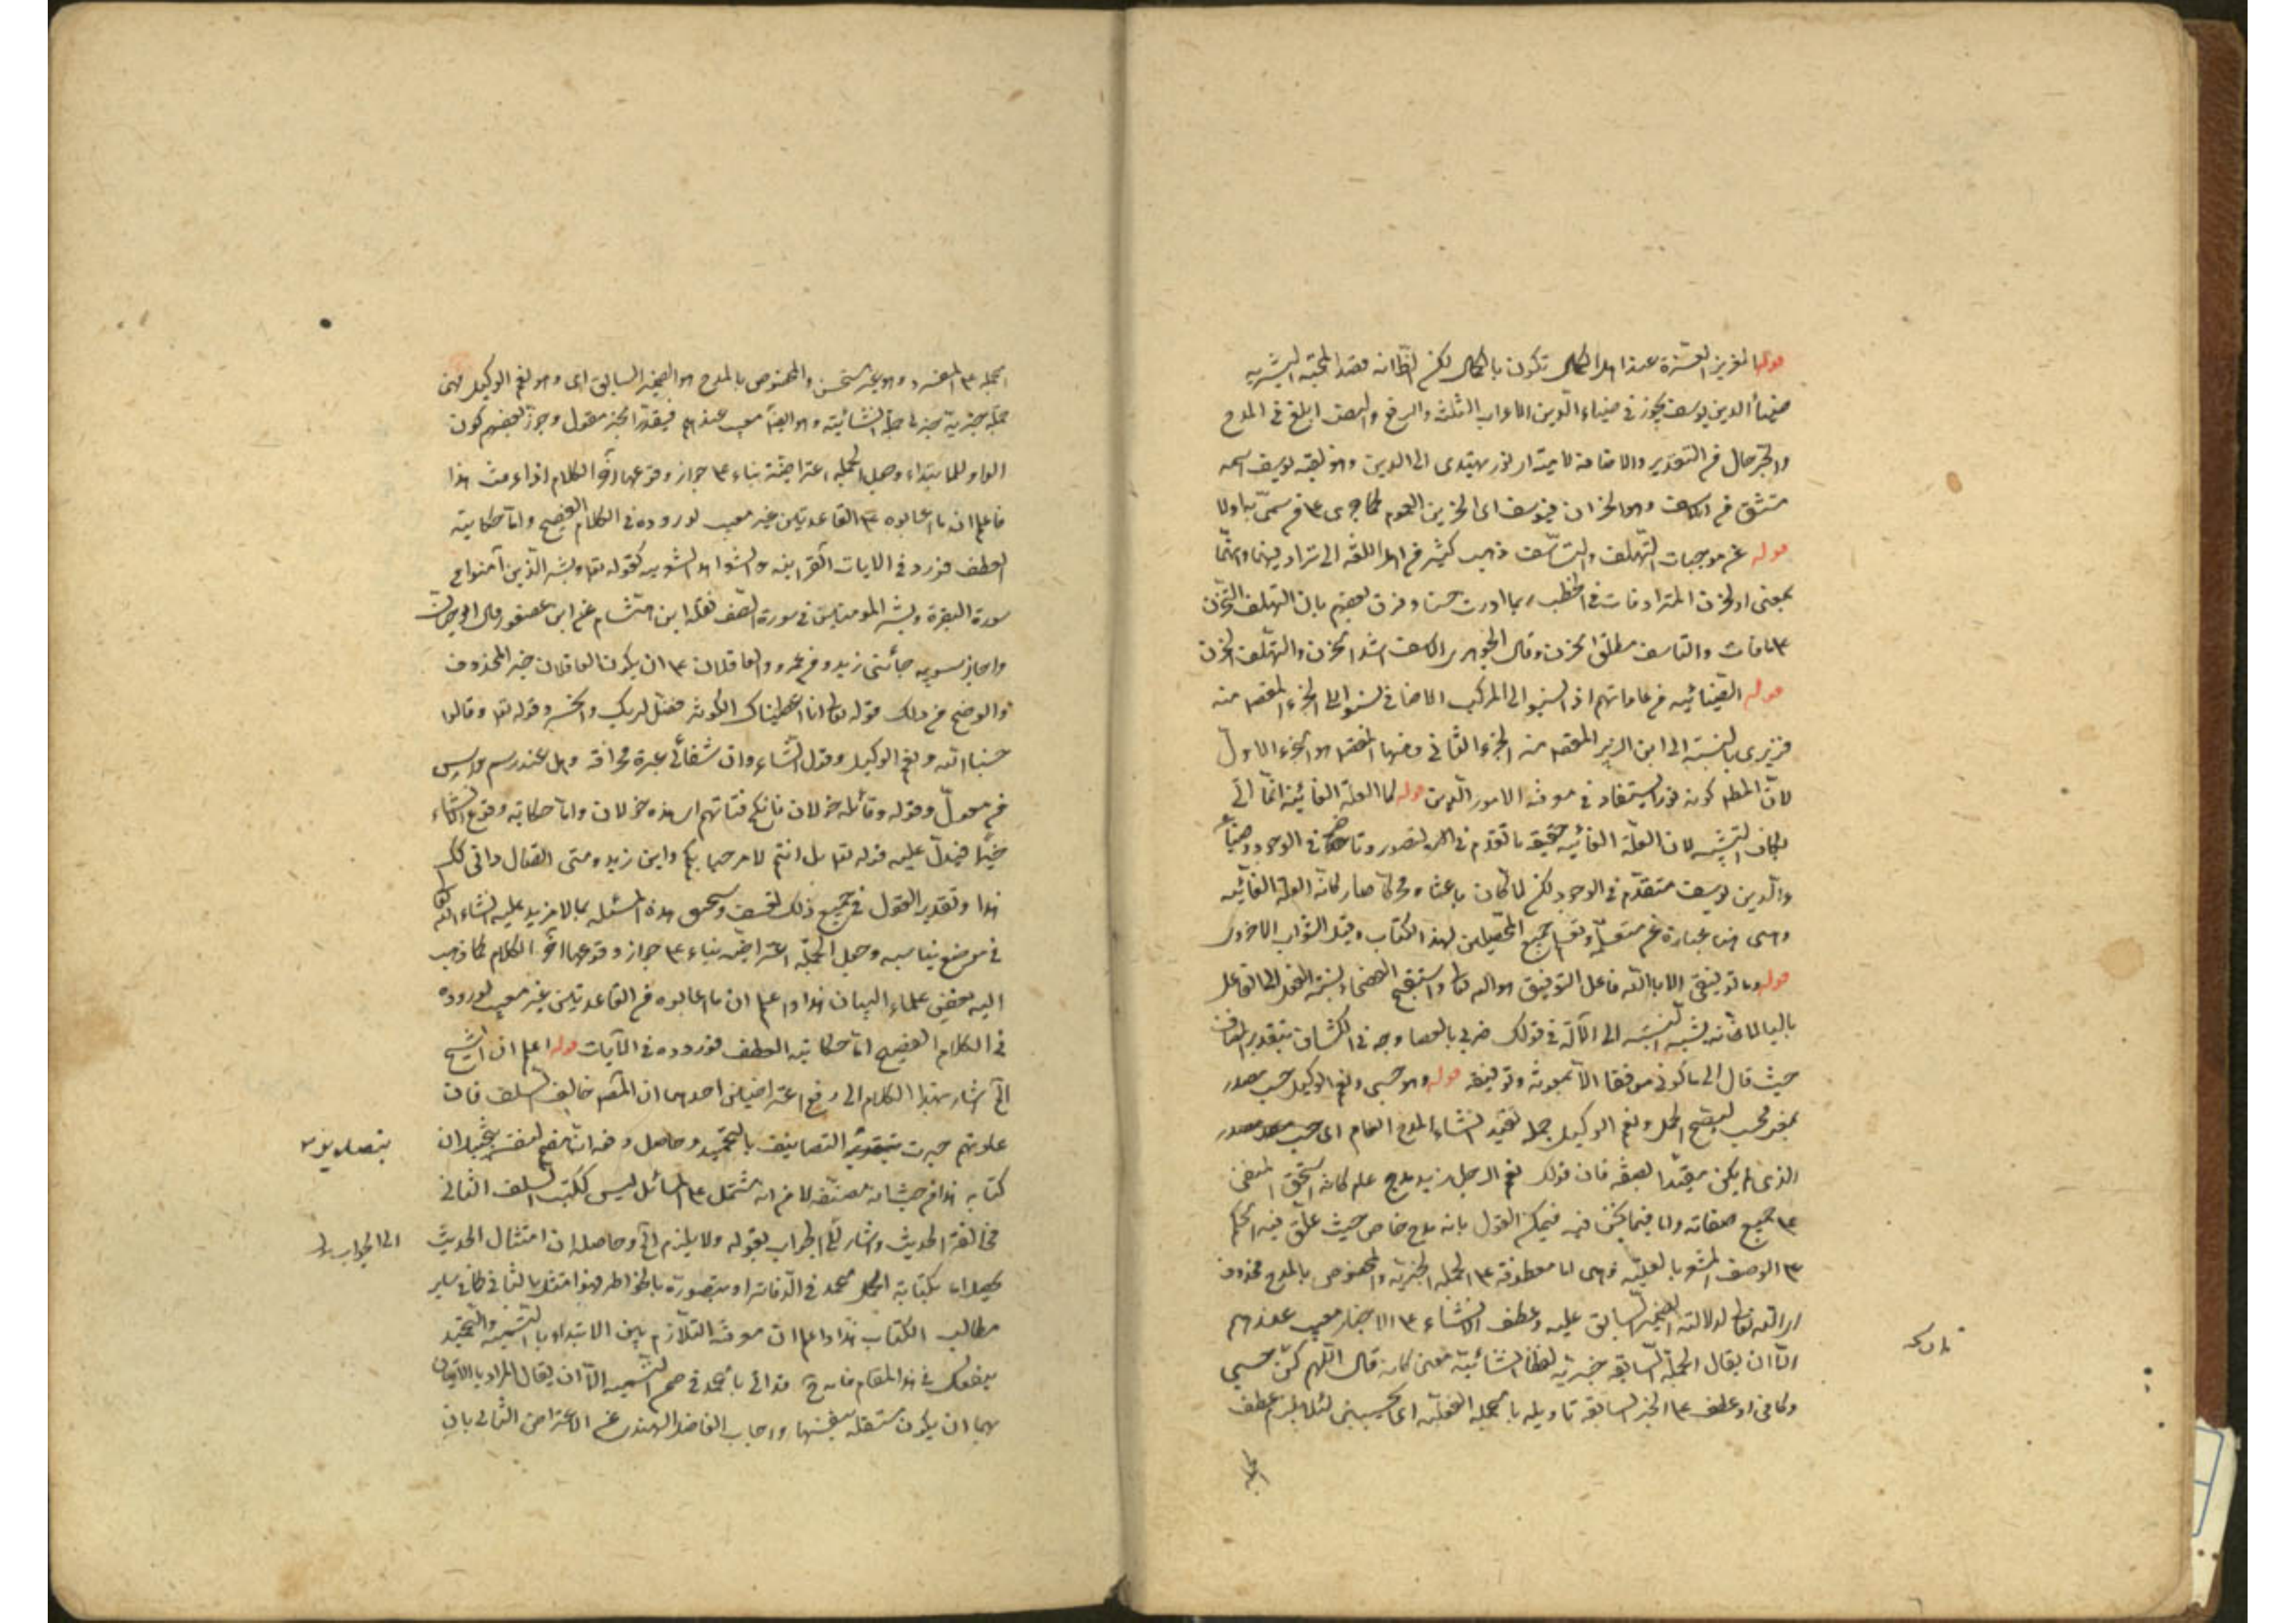 قوله العزيز الغرة عند اهل الكمال تكون بالكمال لكن الظ انه قصد المحبة البشرية
ضياء الدين يوسف يجوز في ضياء الدين الاعراب الثلث والرفع والنصب ابلغ في المدح
والجر حال في التقدير والاضافة لامية اى نور يهتدى الى الدين وهو لقبه يوسف اسمه
مشتق من الاسف وهو الحزن فيوسف اى الحزين
قوله عن موجبات التلهف والتأسف ذهب كثير من اهل اللغة الى ترادفهما وانهما
بمعنى او الحزن المترادفات في الخطب ربما اورث حسنا وفرق بعضهم بان التلهف الحزن
ع ما فات والتاسف مطلق الحزن وقال الجوهرى الاسف اشد الحزن والتلهف الحزن
قوله الضيائيه من عاداتهم اذا نسبوا الى المركب الاضافي نسبوا الى الجزء المقصود منه
فزبيرى بالنسبة الى ابن الزبير المقصود منه الجزء الثاني وههنا المقصود هو الجزء الاول
لان المطلوب كونه نورا يستفاد في معرفة الامور الدين قوله كالعلة الغائية انما اتى
بكاف التشبيه لان العلة الغائية حقيقة ما تقدم في التصور وتأخر في الوجود وضياء
والدين يوسف متقدم في الوجود لكن لما كان باعثا ومحركا صار كانه العلة الغائيه
وهى هنا عبارة عن جميع المحصلين لهذا الكتاب وقيل الثواب الاخروى
قوله وما توفيقى الا بالله فاعل التوفيق هو الله تعالى واستقبح الفصحاء نسبة الفعل الى الفاعل
بالباء لانه يشبه النسبة الى الآلة في قولك ضربى بالعصا وجه في الكشاف بتقدير المضاف
حيث قال اى ما كونى موفقا الا بمعونته وتوفيقه قوله وهو حسبى ونعم الوكيل حسب مصدر
بمعنى محسب ليصح الحمل ونعم الوكيل جملة لقصد انشاء المدح العام اى حسب مصدر
الذى لم يكن مقيدا بصفة فان قولك نعم الرجل زيد مدح عام كانه استحق المدح
ع جميع صفاته واما فيما نحن فيه فيمكن القول بانه مدح خاص حيث علق فيه الحكم
ع الوصف المشعر بالعلية وهى اما معطوفة ع الجملة الخبرية والمخصوص بالمدح محذوف
اى الله تعالى لدلالة الضمير السابق عليه وعطف الانشاء ع الاخبار معيب عندهم
الا ان يقال الجملة السابقة خبرية لفظا انشائية معنى كانه قال اللهم كن حسبى
وكافى او عطف ع الخبر السابقة تاويله بالجملة الفعلية اى يحسبنى لئلا يلزم عطف
الجملة
الجملة ع المفرد وهو غير مستحسن والمخصوص بالمدح هو الضمير السابق اى وهو نعم الوكيل فهى
جملة خبرية خبرها جملة انشائية وهو ايضا معيب عندهم فيقدر الخبر مقول وجوز بعضهم كون
الواو للابتداء وجعل الجملة اعتراضية بناء ع جواز وقوعها آخر الكلام اذا عرفت هذا
فاعلم ان ما عابوه ع القاعدتين غير معيب لوروده في الكلام الفصيح واما حكاية
العطف فورد في الايات القرانيه والشواهد الشعريه كقوله تعالى وبشر الذين آمنوا في
سورة البقرة وبشر المومنين في سورة الصف نقله ابن هشام عن ابن عصفور قال ابو حيان
واجاز سيبويه جائنى زيد ومن عمرو العاقلان ع ان يكون العاقلان خبر المحذوف
واوضح من ذلك قوله تعالى انا اعطيناك الكوثر فصل لربك وانحر وقوله تعالى وقالوا
حسبنا الله ونعم الوكيل وقول الشاعر وان شفائى عبرة مهراقة وهل عند رسم دارس
من معول وقوله وقائلة خولان فانكح فتاتهم اى هذه خولان واما حكاية وقوع الانشاء
خبرا فيدل عليه قوله تعالى بل انتم لا مرحبا بكم واين زيد ومتى القتال وانى لك
هذا وتقدير القول في جميع ذلك تعسف وسيجئ هذه المسئلة بما لا مزيد عليه انشاء الله تعالى
في موضع يناسبه وجعل الجملة اعتراضية بناء ع جواز وقوعها آخر الكلام كما ذهب
اليه بعض علماء البيان هذا واعلم ان ما عابوه من القاعدتين غير معيب لوروده
في الكلام الفصيح اما حكاية العطف فوروده في الآيات قوله اعلم ان الشيخ
الخ اشار بهذا الكلام الى رفع اعتراضين احدهما ان المصنف خالف السلف فان
عادتهم جرت التصانيف بالتحميد وحاصل دفعه انه هضم لنفسه بتخييل ان
كتابه هذا من حيث انه مصنفه لا من انه مشتمل ع المسائل ليس ككتب السلف الثانى
مخالفة الحديث واشار الى الجواب بقوله ولا يلزم الخ وحاصله ان امتثال الحديث
يحصل اما بكتابة الحمد في الدفاتر او بتصوره بالخواطر فهو امتثل بالثانى كما في ساير
مطالب الكتاب هذا واعلم ان معرفة التلازم بين الابتداء بالتسمية والتحميد
ينفعك في هذا المقام بالحمد في ضمن التسميه الا ان يقال المراد بالاتيان
بهما ان يكون مستقلة بنفسها واجاب الفاضل الهندى عن الاعتراض الثانى بان